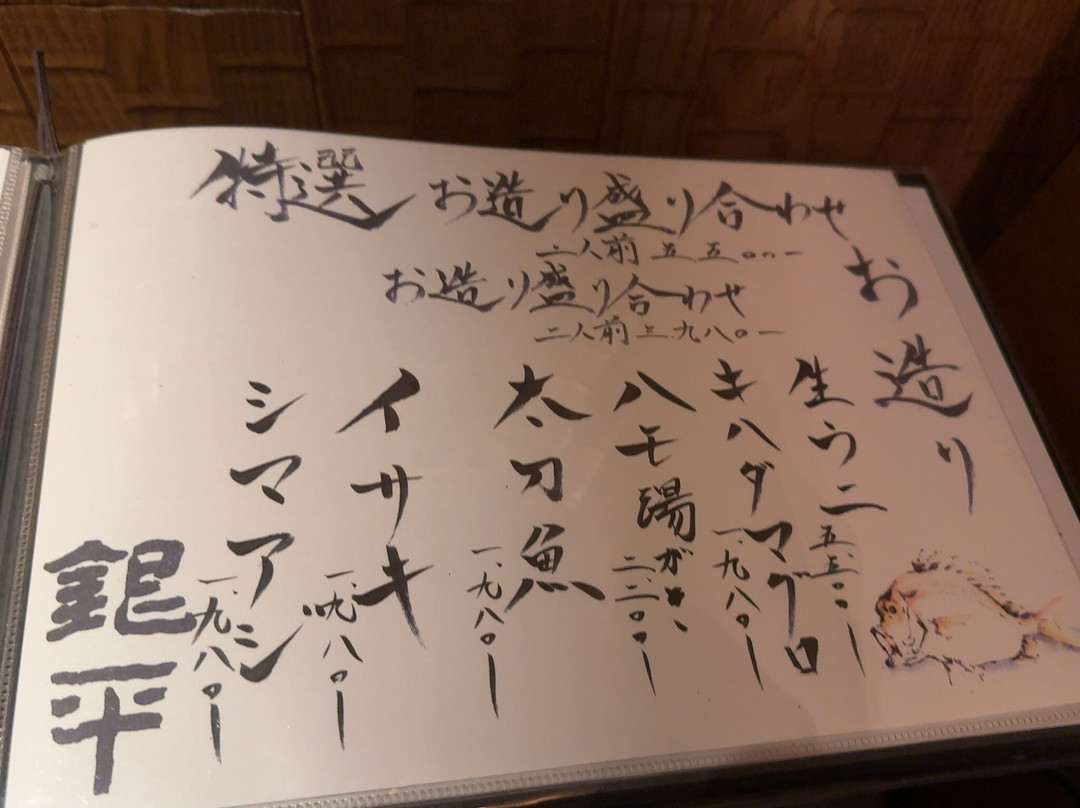 お造り
特選 お造り盛り合わせ
二人前 五五〇〇ー
お造り盛り合わせ
二人前 三.九八〇ー
生ウニ
キハダマグロ 一.九八〇ー
ハモ湯がき 二.二〇〇ー
太刀魚 一.九八〇ー
イサキ 一.九八〇ー
シマアジ 一.九八〇ー
銀平